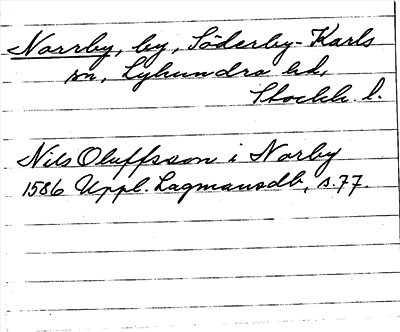 Norrby, by, Söderby-Karls
sn, Lyhundra hd,
Stockh. l.
Nils Oluffsson i Norby
1586 Uppl. Lagmansdb, s. 77.